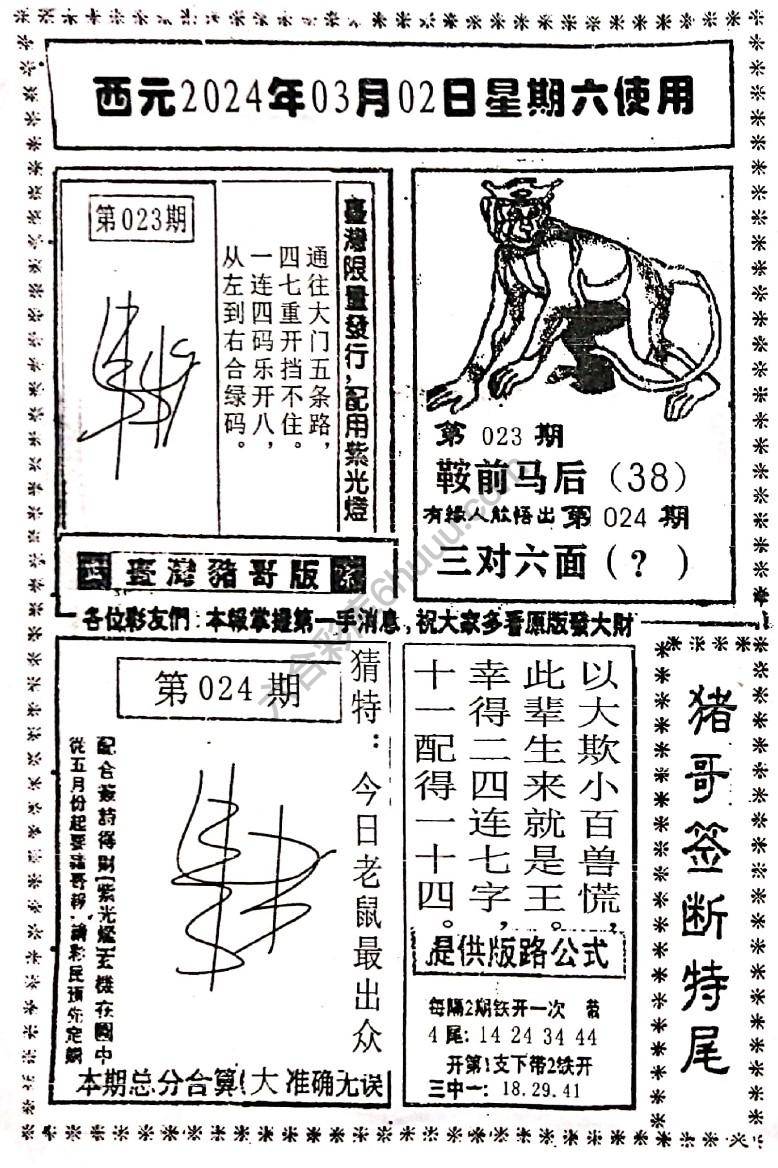 西元2024年03月02日星期六使用
第023期
臺灣限量發行，配用紫光燈
通往大门五条路，
四七重开挡不住。
一连四码乐开八，
从左到右合绿码。
第 023 期
鞍前马后（38）
有緣人能悟出 第 024 期
三对六面（？）
臺灣豬哥版
各位彩友們：本報掌握第一手消息，祝大家多看原版發大財
第024期
猜特：今日老鼠最出众
從五月份起要豬哥報，請彩民預先定購
本期总分合算(大)准确无误
以大欺小百兽慌，
此辈生来就是王。
幸得二四连七字，
十一配得一十四。
提供版路公式
每隔2期铁开一次
4尾：14 24 34 44
开第1支下带2铁开
三中一：18.29.41
猪哥签断特尾